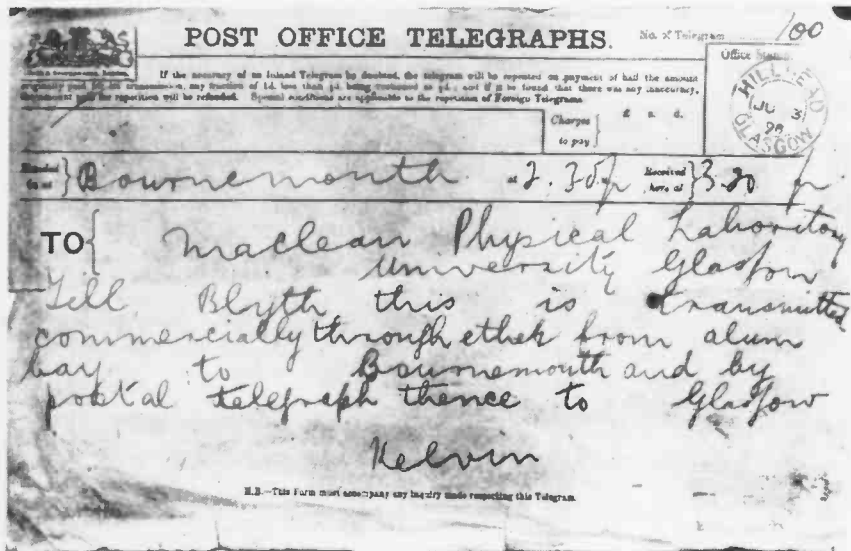 POST OFFICE TELEGRAPHS.
No. of Telegram 100
Office Stamp
If the accuracy of an Inland Telegram be doubted, the telegram will be repeated on payment of half the amount
originally paid for its transmission, any fraction of 1d. less than ½d. being reckoned as ½d.; and if it be found that there was any inaccuracy,
the amount paid for repetition will be refunded. Special conditions are applicable to the repetition of Foreign Telegrams.
Charges to pay
£ s. d.
HILLHEAD
JU 3
98
GLASGOW
Handed in at } Bournemouth at 2.30 p Received here at } 3.20 p
TO { Maclean Physical Laboritory
University Glasgow
Tell Blyth this is transmitted
commercially through ethek from alum
bay to Bournemouth and by
postal telegraph thence to Glasgow
Kelvin
N.B.—This Form must accompany any inquiry made respecting this Telegram.